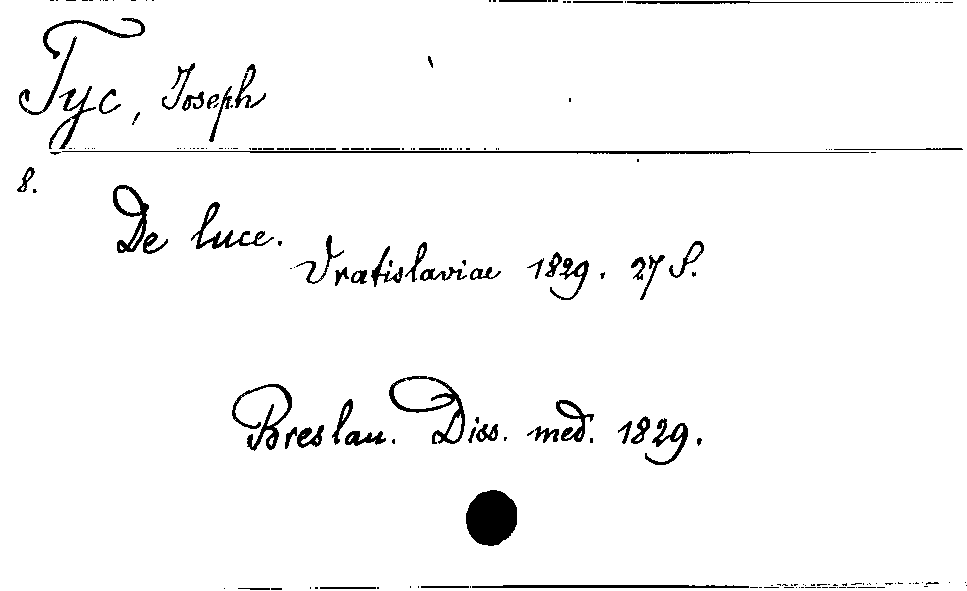 Tyc, Joseph
8.
De luce.
Vratislaviae 1829. 27 S.
Breslau. Diss. med. 1829.